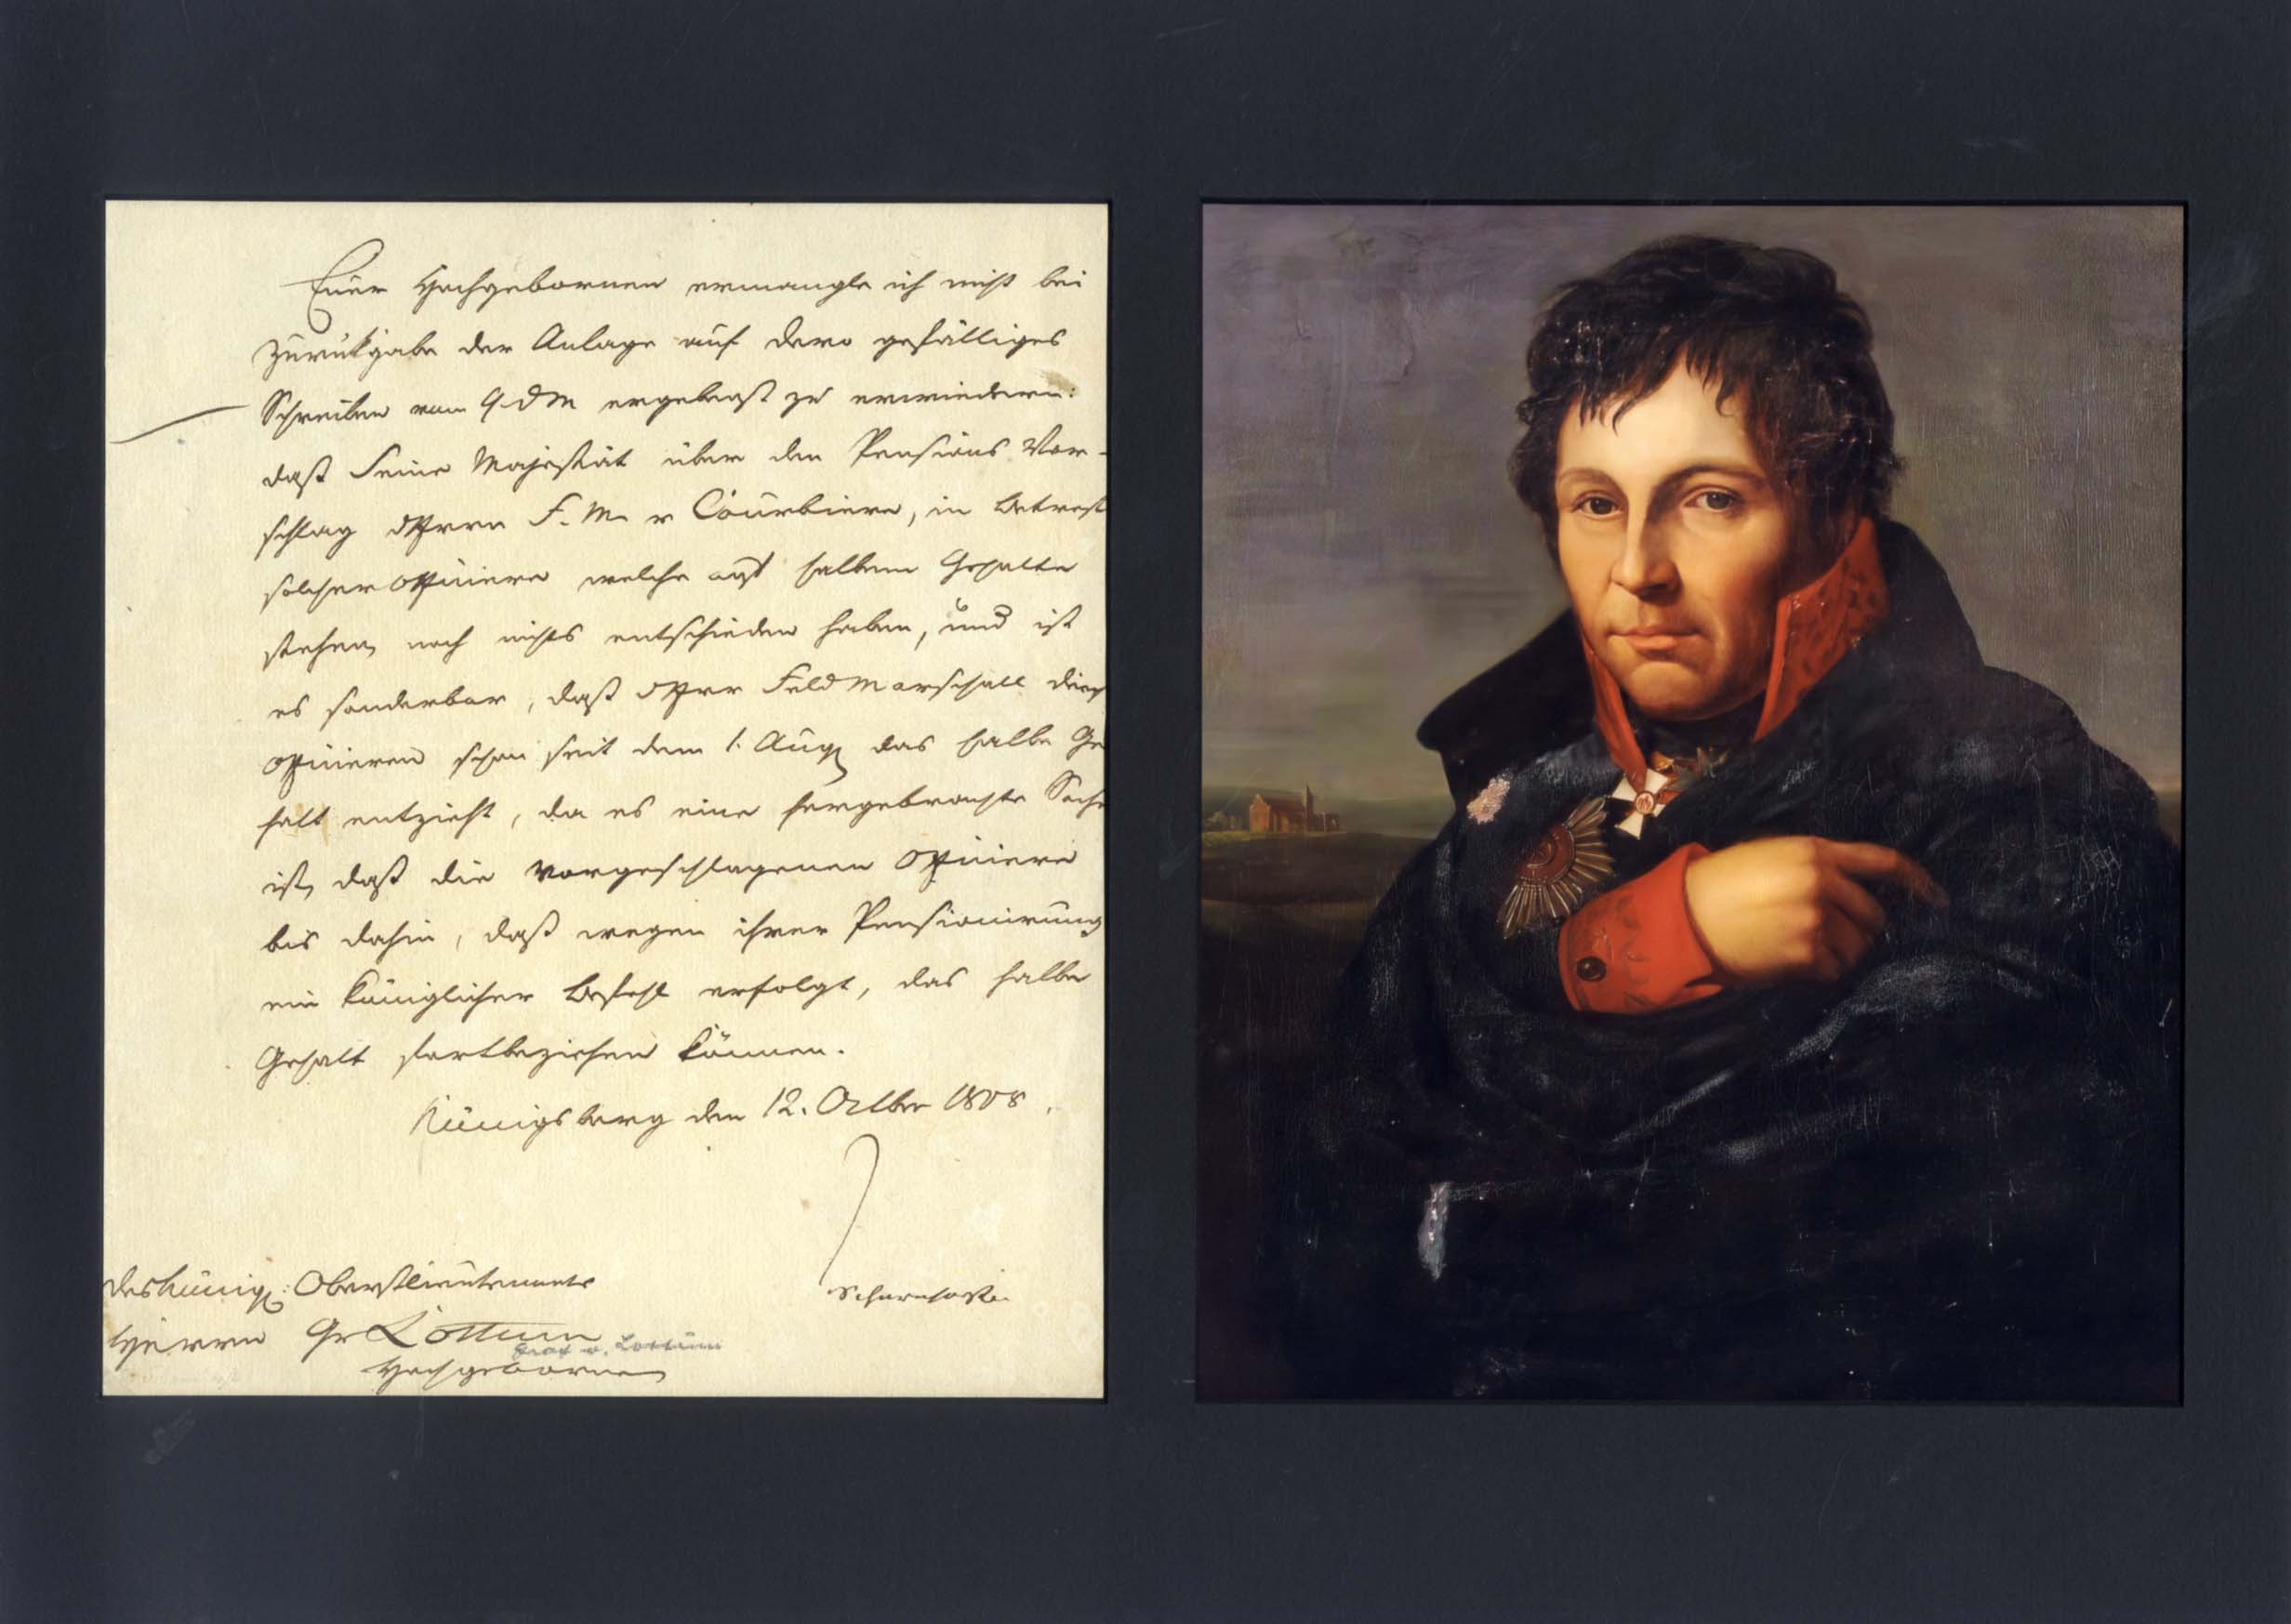 Euer Hochgebornen ermangle ich nicht bei
Zurükgabe der Anlage auf dero gefälliges
Schreiben vom 9 d M ergebenst zu erwiedern:
daß Seine Majestät über den Pensions Vor-
schlag d Herrn F. M. v Courbiere, in Betreff
solcher Officiere welche auf halbem Gehalte
stehen, noch nichts entschieden haben, und ist
es sonderbar, daß d Herr Feld Marschall diesen
Officieren schon seit dem 1. Aug das halbe Ge
halt entzieht, da es eine hergebrachte Sache
ist, daß die vorgeschlagenen Officiere
bis dahin, daß wegen ihrer Pensionirung
ein königlicher Befehl erfolgt, das halbe
Gehalt fortbeziehen können.
Königsberg den 12. Octber 1808.
Scharnhorst
des König: Oberstlieutenants
Herrn Gr Lottum
Graf v. Lottum
Hochgeboren